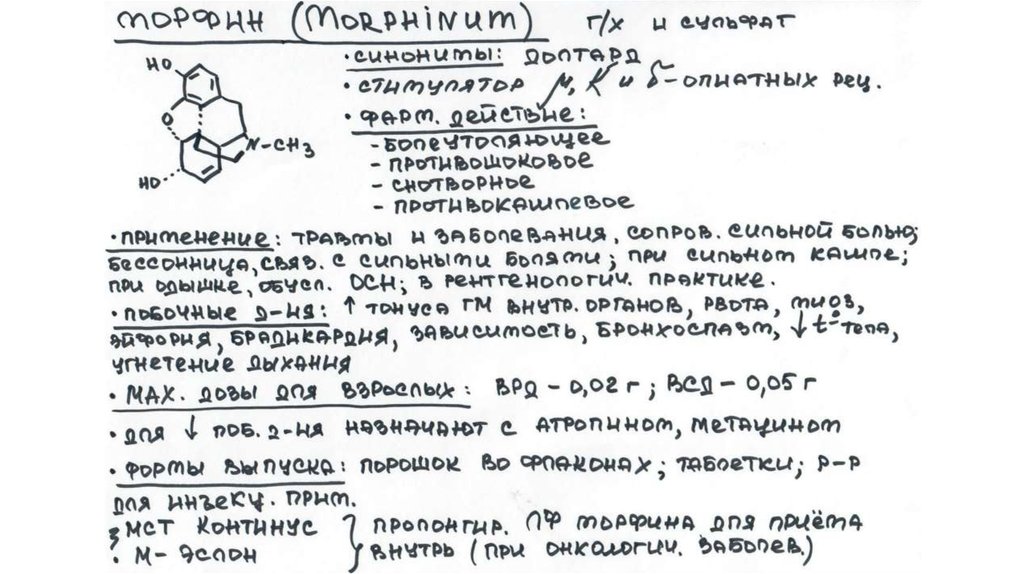 МОРФИН (MORPHINUM) Г/Х И СУЛЬФАТ
• СИНОНИМЫ: ДОЛТАРД
• СТИМУЛЯТОР μ, К и δ-ОПИАТНЫХ РЕЦ.
• ФАРМ. ДЕЙСТВИЕ:
- БОЛЕУТОЛЯЮЩЕЕ
- ПРОТИВОШОКОВОЕ
- СНОТВОРНОЕ
- ПРОТИВОКАШЛЕВОЕ
HO
O
N-CH3
HO
• ПРИМЕНЕНИЕ: ТРАВМЫ И ЗАБОЛЕВАНИЯ, СОПРОВ. СИЛЬНОЙ БОЛЬЮ;
БЕССОННИЦА, СВЯЗ. С СИЛЬНЫМИ БОЛЯМИ; ПРИ СИЛЬНОМ КАШЛЕ;
ПРИ ОДЫШКЕ, ОБУСЛ. ОСН; В РЕНТГЕНОЛОГИЧ. ПРАКТИКЕ.
• ПОБОЧНЫЕ Д-ИЯ: ↑ ТОНУСА ГМ ВНУТР. ОРГАНОВ, РВОТА, МИОЗ,
ЭЙФОРИЯ, БРАДИКАРДИЯ, ЗАВИСИМОСТЬ, БРОНХОСПАЗМ, ↓ t° ТЕЛА,
УГНЕТЕНИЕ ДЫХАНИЯ
• МАХ. ДОЗЫ ДЛЯ ВЗРОСЛЫХ: ВРД - 0,02 г; ВСД - 0,05 г
• ДЛЯ ↓ ПОБ. Д-ИЯ НАЗНАЧАЮТ С АТРОПИНОМ, МЕТАЦИНОМ
• ФОРМЫ ВЫПУСКА: ПОРОШОК ВО ФЛАКОНАХ; ТАБЛЕТКИ; Р-Р
ДЛЯ ИНЪЕКЦ. ПРИМ.
• МСТ КОНТИНУС } ПРОЛОНГИР. ЛФ МОРФИНА ДЛЯ ПРИЁМА
• М- ЭСЛОН } ВНУТРЬ (ПРИ ОНКОЛОГИЧ. ЗАБОЛЕВ.)